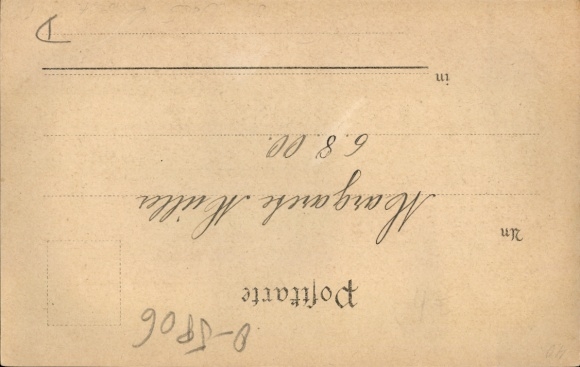 Postkarte
An
Margarete Müller
6.8.00.
in
D